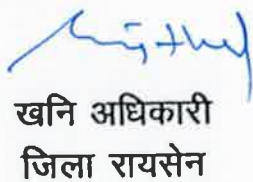 खनि अधिकारी
जिला रायसेन